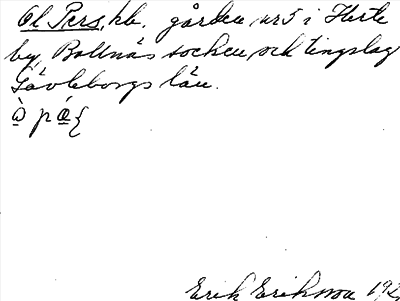 Ol Pers, hb. gården nr 5 i Herte
by, Bollnäs socken och tingslag
Gävleborgs län.
Erik Eriksson 192